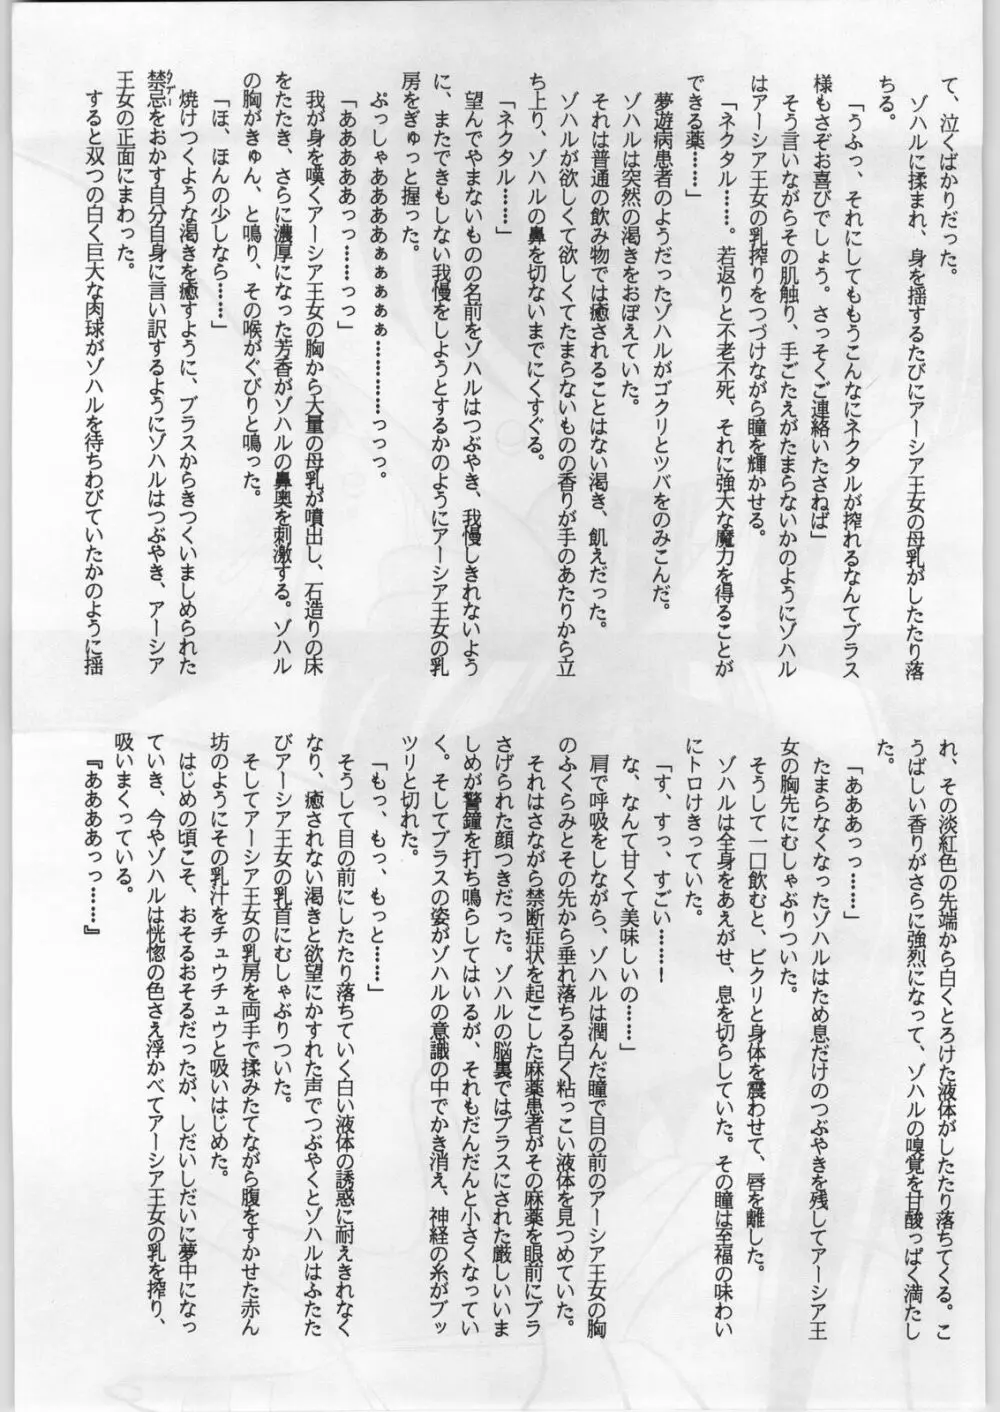 て、泣くばかりだった。
ゾハルに揉まれ、身を揺するたびにアーシア王女の母乳がしたたり落
ちる。
「うふっ、それにしてももうこんなにネクタルが搾れるなんてブラス
様もさぞお喜びでしょう。さっそくご連絡いたさねば」
そう言いながらその肌触り、手ごたえがたまらないかのようにゾハル
はアーシア王女の乳搾りをつづけながら瞳を輝かせる。
「ネクタル……。若返りと不老不死、それに強大な魔力を得ることが
できる薬……」
夢遊病患者のようだったゾハルがゴクリとツバをのみこんだ。
ゾハルは突然の渇きをおぼえていた。
それは普通の飲み物では癒されることはない渇き、飢えだった。
ゾハルが欲しくて欲しくてたまらないものの香りが手のあたりから立
ち上り、ゾハルの鼻を切ないまでにくすぐる。
「ネクタル……」
望んでやまないものの名前をゾハルはつぶやき、我慢しきれないよう
に、またできもしない我慢をしようとするかのようにアーシア王女の乳
房をぎゅっと握った。
ぷっしゃああああぁぁぁぁぁ…………っっっ。
「あああああっっ……っっ」
我が身を嘆くアーシア王女の胸から大量の母乳が噴出し、石造りの床
をたたき、さらに濃厚になった芳香がゾハルの鼻奥を刺激する。ゾハル
の胸がきゅん、と鳴り、その喉がぐびりと鳴った。
「ほ、ほんの少しなら……」
焼けつくような渇きを癒すように、ブラスからきつくいましめられた
禁忌（タブー）をおかす自分自身に言い訳するようにゾハルはつぶやき、アーシア
王女の正面にまわった。
すると双つの白く巨大な肉球がゾハルを待ちわびていたかのように揺
れ、その淡紅色の先端から白くとろけた液体がしたたり落ちてくる。こ
うばしい香りがさらに強烈になって、ゾハルの嗅覚を甘酸っぱく満たし
た。
「あああっっ……」
たまらなくなったゾハルはため息だけのつぶやきを残してアーシア王
女の胸先にむしゃぶりついた。
そうして一口飲むと、ビクリと身体を震わせて、唇を離した。
ゾハルは全身をあえがせ、息を切らしていた。その瞳は至福の味わい
にトロけきっていた。
「す、すっ、すごい……！
な、なんて甘くて美味しいの……」
肩で呼吸をしながら、ゾハルは潤んだ瞳で目の前のアーシア王女の胸
のふくらみとその先から垂れ落ちる白く粘っこい液体を見つめていた。
それはさながら禁断症状を起こした麻薬患者がその麻薬を眼前にブラ
さげられた顔つきだった。ゾハルの脳裏ではブラスにされた厳しいいま
しめが警鐘を打ち鳴らしてはいるが、それもだんだんと小さくなってい
く。そしてブラスの姿がゾハルの意識の中でかき消え、神経の糸がブッ
ツリと切れた。
「もっ、もっ、もっと……」
そうして目の前にしたたり落ちていく白い液体の誘惑に耐えきれなく
なり、癒されない渇きと欲望にかすれた声でつぶやくとゾハルはふたた
びアーシア王女の乳首にむしゃぶりついた。
そしてアーシア王女の乳房を両手で揉みたてながら腹をすかせた赤ん
坊のようにその乳汁をチュウチュウと吸いはじめた。
はじめの頃こそ、おそるおそるだったが、しだいしだいに夢中になっ
ていき、今やゾハルは恍惚の色さえ浮かべてアーシア王女の乳を搾り、
吸いまくっている。
『ああああっっ……』